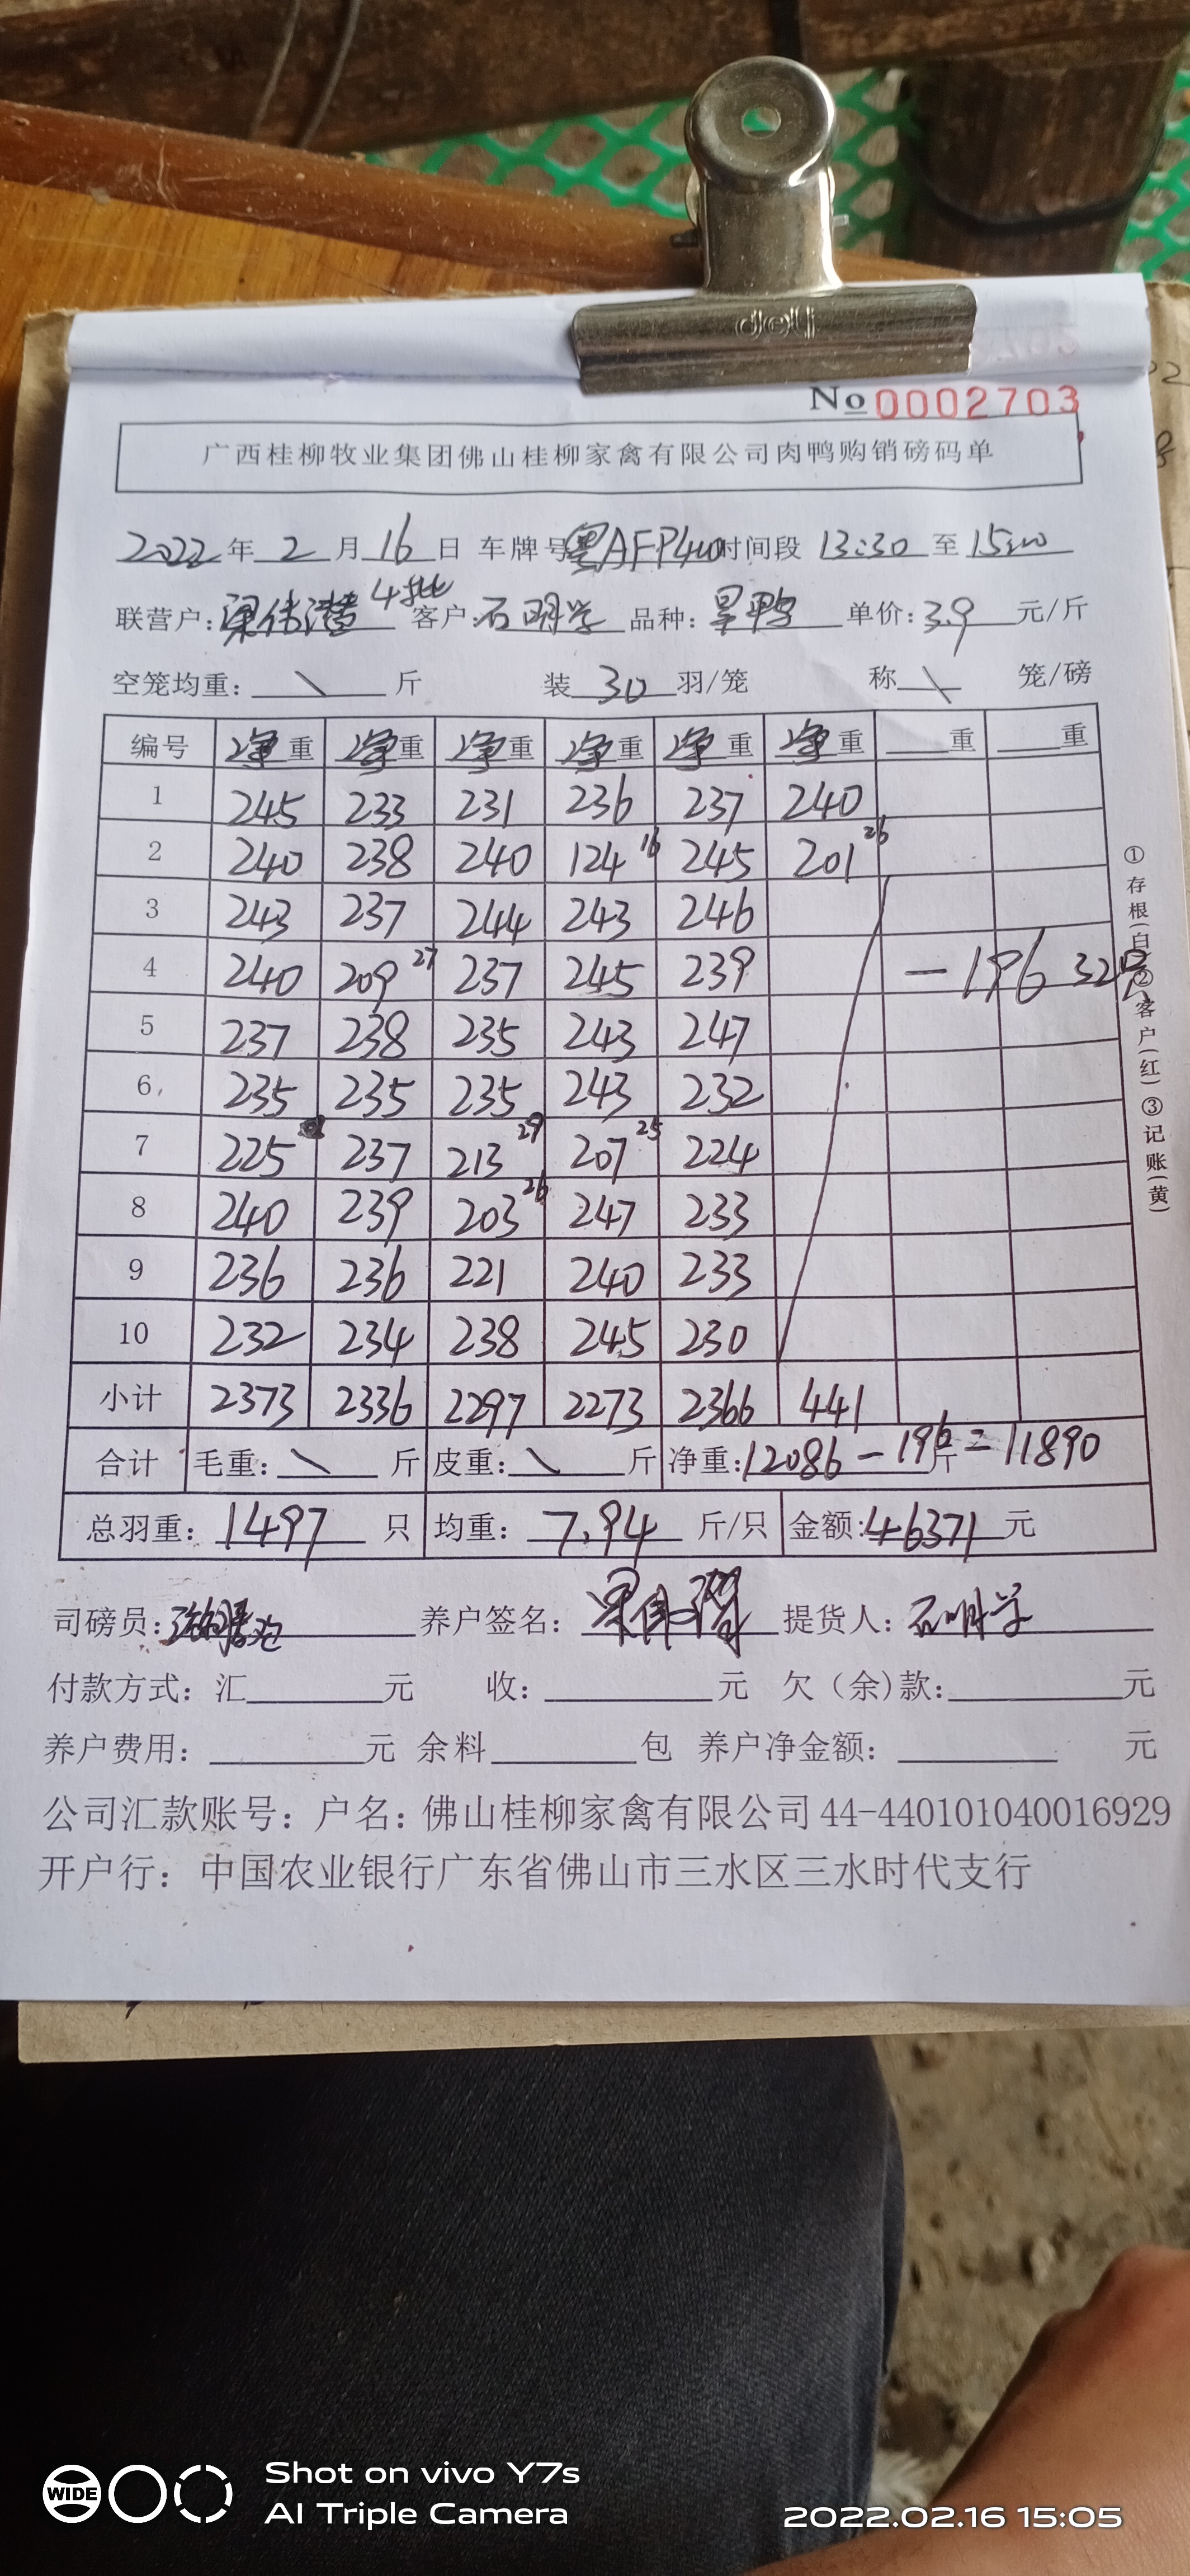 deli
No 0002703
广西桂柳牧业集团佛山桂柳家禽有限公司肉鸭购销磅码单
2022 年 2 月 16 日 车牌号 粤AFP400 时间段 13:30 至 15:00
4批
联营户: 梁伟潜 客户: 石明学 品种: 旱鸭 单价: 3.9 元/斤
空笼均重: \ 斤 装 30 羽/笼 称 \ 笼/磅
编号 净重 净重 净重 净重 净重 净重 重 重
1 245 233 231 236 237 240
2 240 238 240 124 16 245 201 26
3 243 237 244 243 246
4 240 209 27 237 245 239 -196 32只
5 237 238 235 243 247
6 235 235 235 243 232
7 225 237 213 29 207 25 224
8 240 239 203 26 247 233
9 236 236 221 240 233
10 232 234 238 245 230
小计 2373 2336 2297 2273 2366 441
合计 毛重: \ 斤 皮重: \ 斤 净重: 12086 - 196 斤 = 11890
总羽重: 1497 只 均重: 7.94 斤/只 金额: 46371 元
司磅员: 养户签名: 梁伟潜 提货人: 石明学
付款方式: 汇 元 收: 元 欠(余)款: 元
养户费用: 元 余料 包 养户净金额: 元
公司汇款账号: 户名: 佛山桂柳家禽有限公司 44-440101040016929
开户行: 中国农业银行广东省佛山市三水区三水时代支行
①存根(白)②客户(红)③记账(黄)
WIDE
Shot on vivo Y7s
AI Triple Camera
2022.02.16 15:05